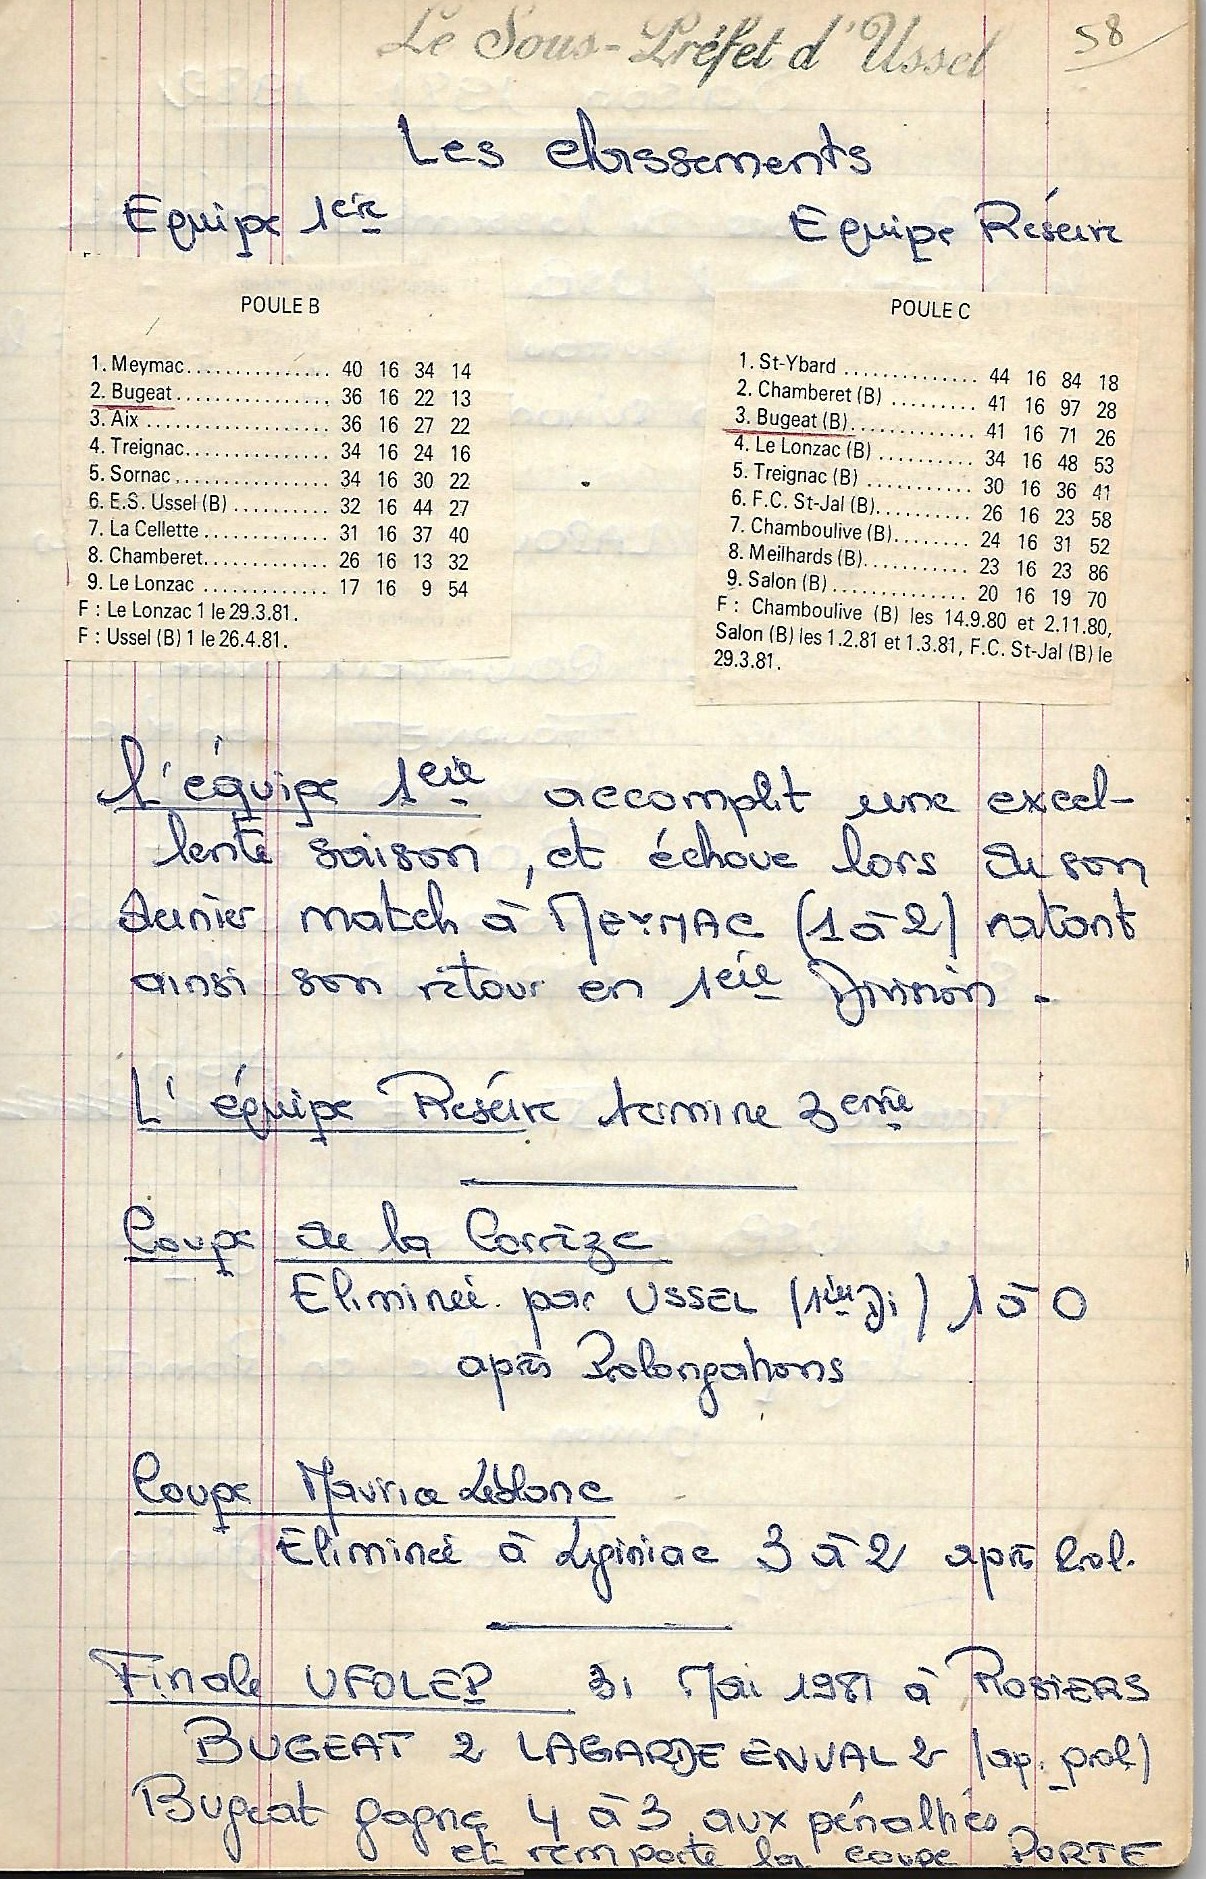 Le Sous-Préfet d'Ussel
58
Les classements
Equipe 1ère
Equipe Réserve
POULE B
1. Meymac............... 40 16 34 14
2. Bugeat................ 36 16 22 13
3. Aix ................... 36 16 27 22
4. Treignac............... 34 16 24 16
5. Sornac................ 34 16 30 22
6. E.S. Ussel (B) .......... 32 16 44 27
7. La Cellette............. 31 16 37 40
8. Chamberet............. 26 16 13 32
9. Le Lonzac ............. 17 16 9 54
F : Le Lonzac 1 le 29.3.81.
F : Ussel (B) 1 le 26.4.81.
POULE C
1. St-Ybard .............. 44 16 84 18
2. Chamberet (B) ......... 41 16 97 28
3. Bugeat (B)............. 41 16 71 26
4. Le Lonzac (B) .......... 34 16 48 53
5. Treignac (B) ........... 30 16 36 41
6. F.C. St-Jal (B).......... 26 16 23 58
7. Chamboulive (B)........ 24 16 31 52
8. Meilhards (B)........... 23 16 23 86
9. Salon (B) .............. 20 16 19 70
F : Chamboulive (B) les 14.9.80 et 2.11.80,
Salon (B) les 1.2.81 et 1.3.81, F.C. St-Jal (B) le
29.3.81.
L'équipe 1ère accomplit une excel-
lente saison, et échoue lors de son
dernier match à MEYMAC (1 à 2) ratant
ainsi son retour en 1ère Division.
L'équipe Réserve termine 3ème
Coupe de la Corrèze
Eliminée par USSEL (1ère Di) 1 à 0
après Prolongations
Coupe Maurice Leblanc
Eliminée à Liginiac 3 à 2 après Prol.
Finale UFOLEP 31 Mai 1981 à ROSIERS
BUGEAT 2 LAGARDE ENVAL 2 (ap. prol)
Bugeat gagne 4 à 3 aux pénalties
et remporte la coupe PORTE